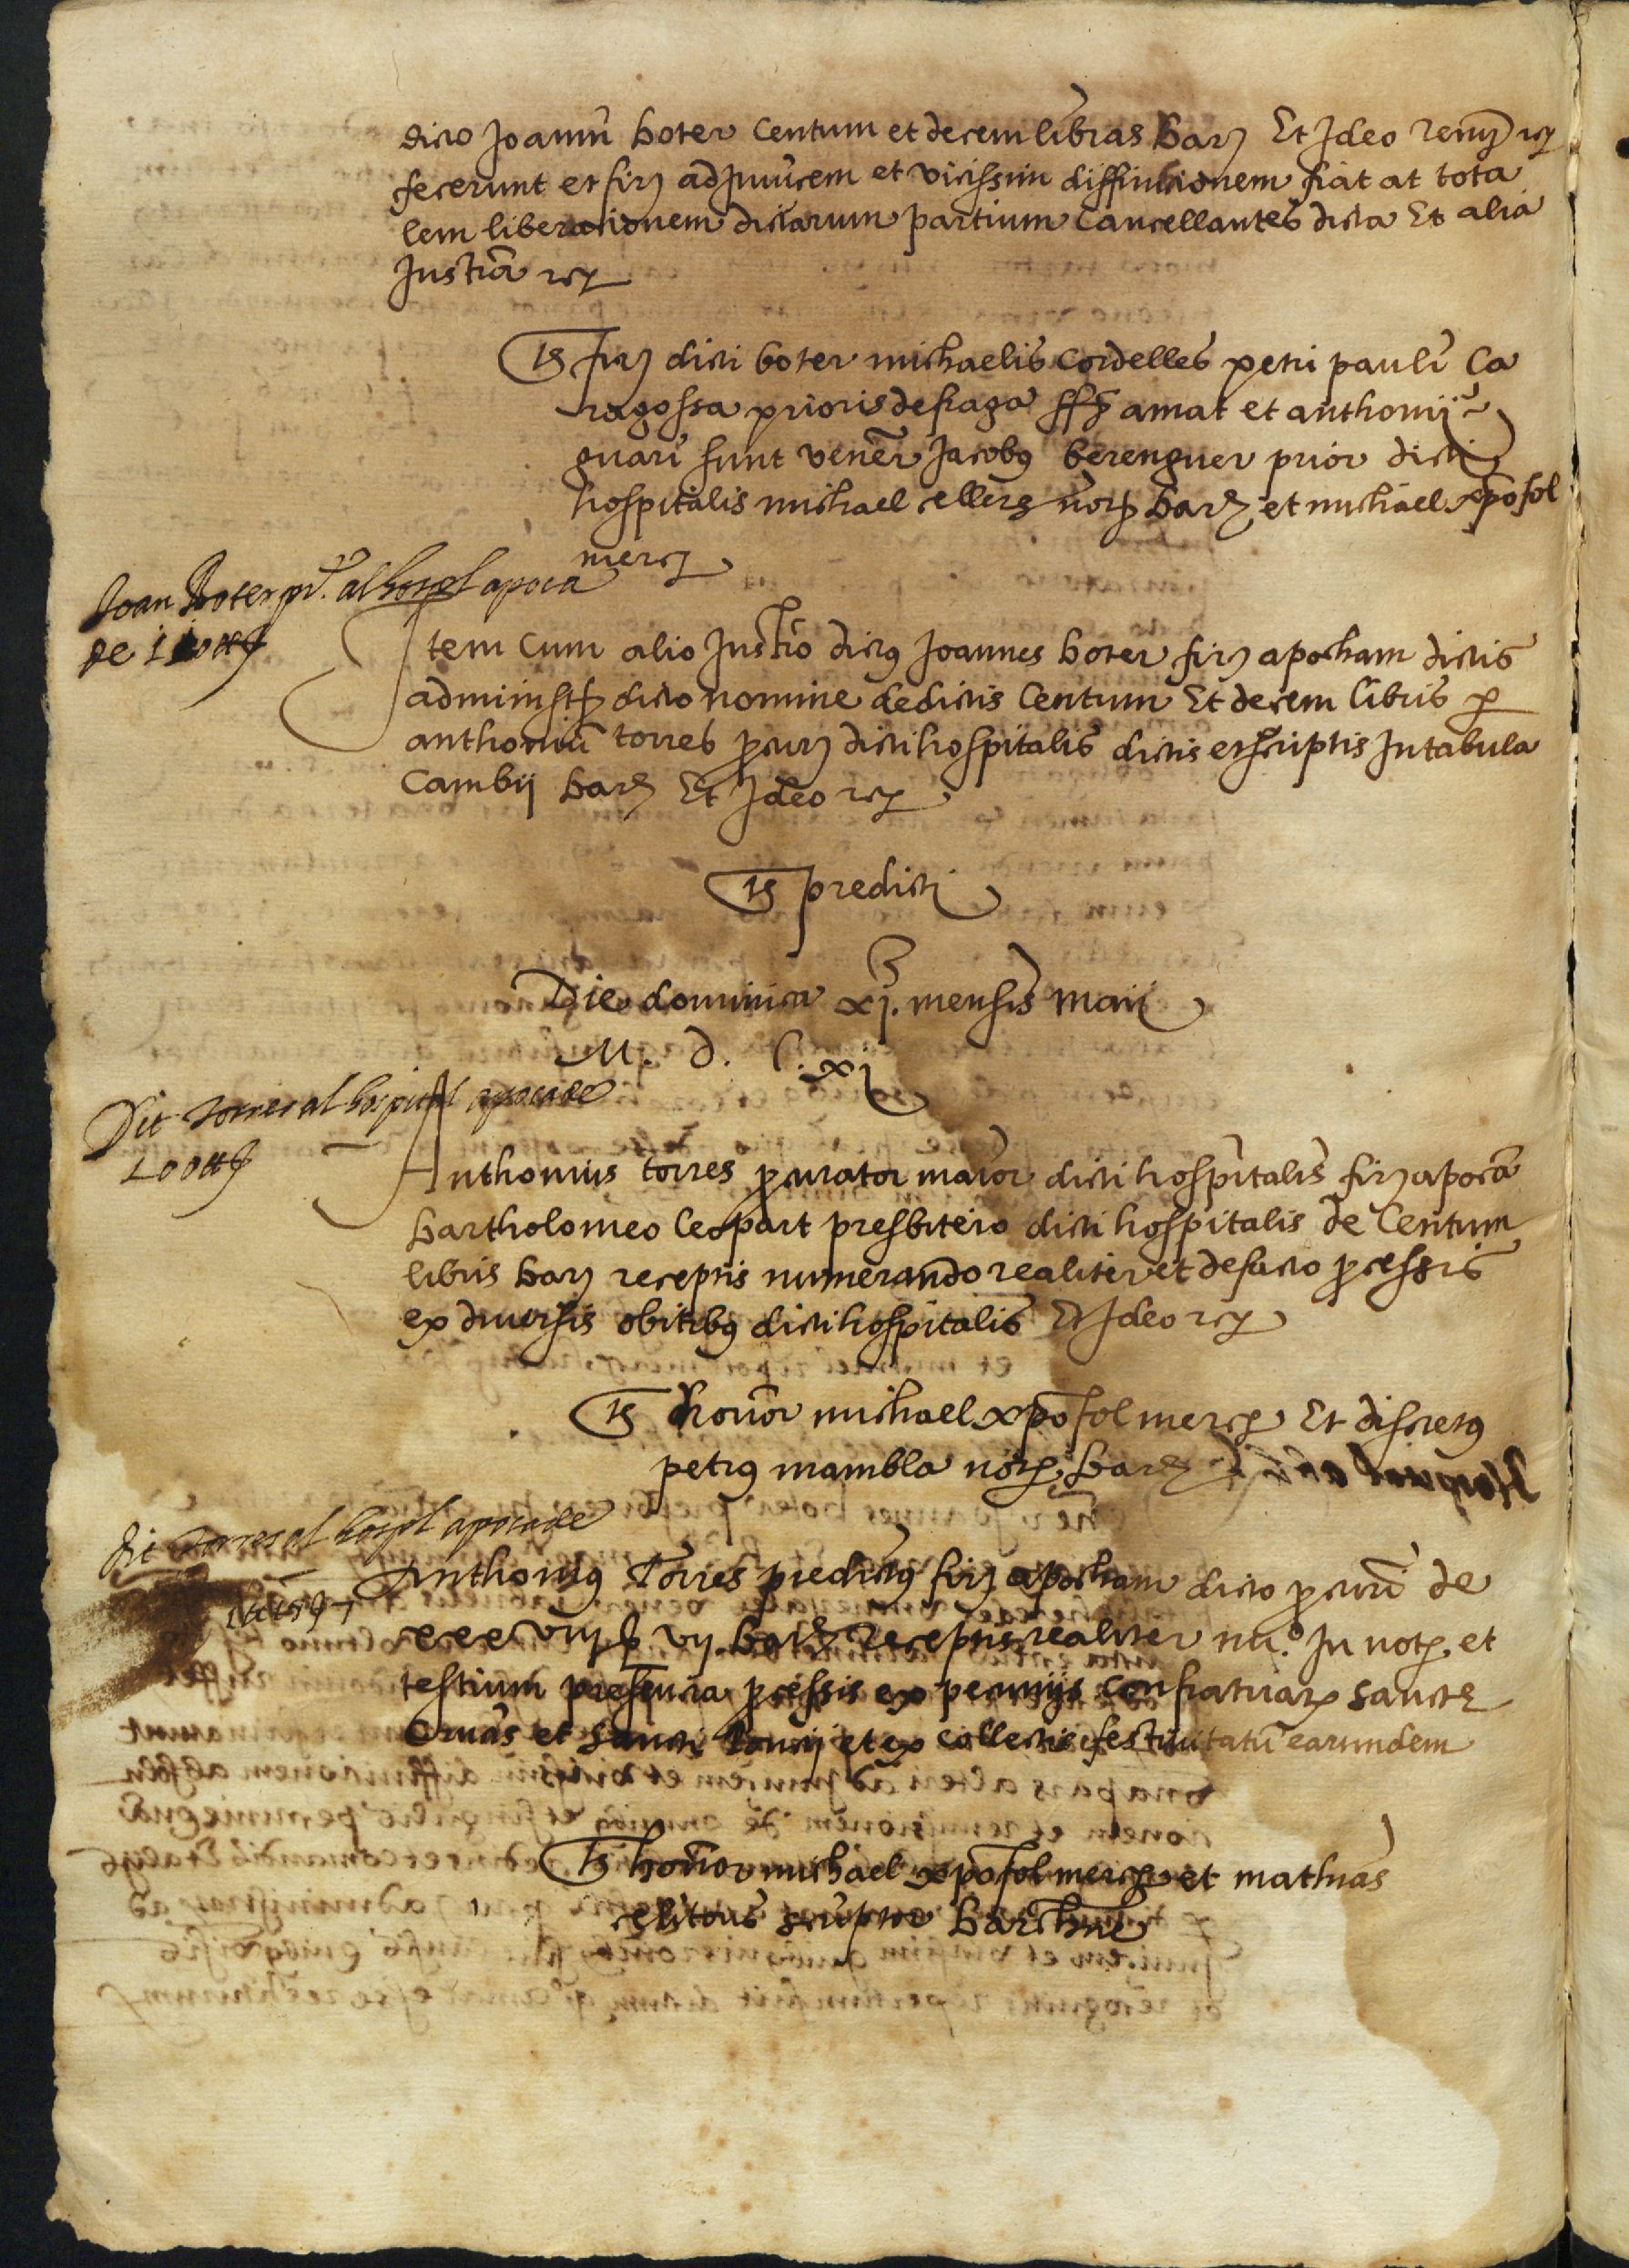 dicto Joanni boter Centum et decem libras bar Et Ideo
fecerunt et fir ad Invicem et vicissim diffinicionem fiat at tota
lem liberacionem dictarum partium Cancellantes dicta Et alia
Instra etc
Ts fir dicti boter michaelis Cordelles petri pauli Ca
ragossa prioris de fraga ff amat et anthonij
guari sunt vener Jacobus berenguer prior dicti
hospitalis michael cellers not bar et michael xpofol
merc
Joan Boter pr. al hospl apoca
de 110 ℔
Item Cum alio Instro dictus Joannes boter fir apocham dictis
administ dicto nomine de dictis Centum Et decem libris p
anthoniu torres procur dicti hospitalis dictis et scriptis In tabula
Cambij bar Et Ideo etc
Ts predicti
Die dominica xj. mensis maii
M. d. l. xj
Dit torres al hospital apoca de
100 ℔
Anthonius torres procurator maior dicti hospitalis fir apoca
bartholomeo leopart presbitero dicti hospitalis de Centum
libris bar receptis numerando realiter et de facto processis
ex diversis obitibus dicti hospitalis Et Ideo etc
Ts honor michael xpofol merc Et discretus
petrus mambla not bar
dit torres al hospl apoca de
Anthonius Torres predictus fir apocham dicto procuri de
vij. bar Receptis realiter nu.o In not et
testium presencia processis ex pecunijs confratriar sancte
Crucis et sancti et ex collectis festivitatu earumdem
Ts honor michael xpofol merc et mathias
scriptor barchne